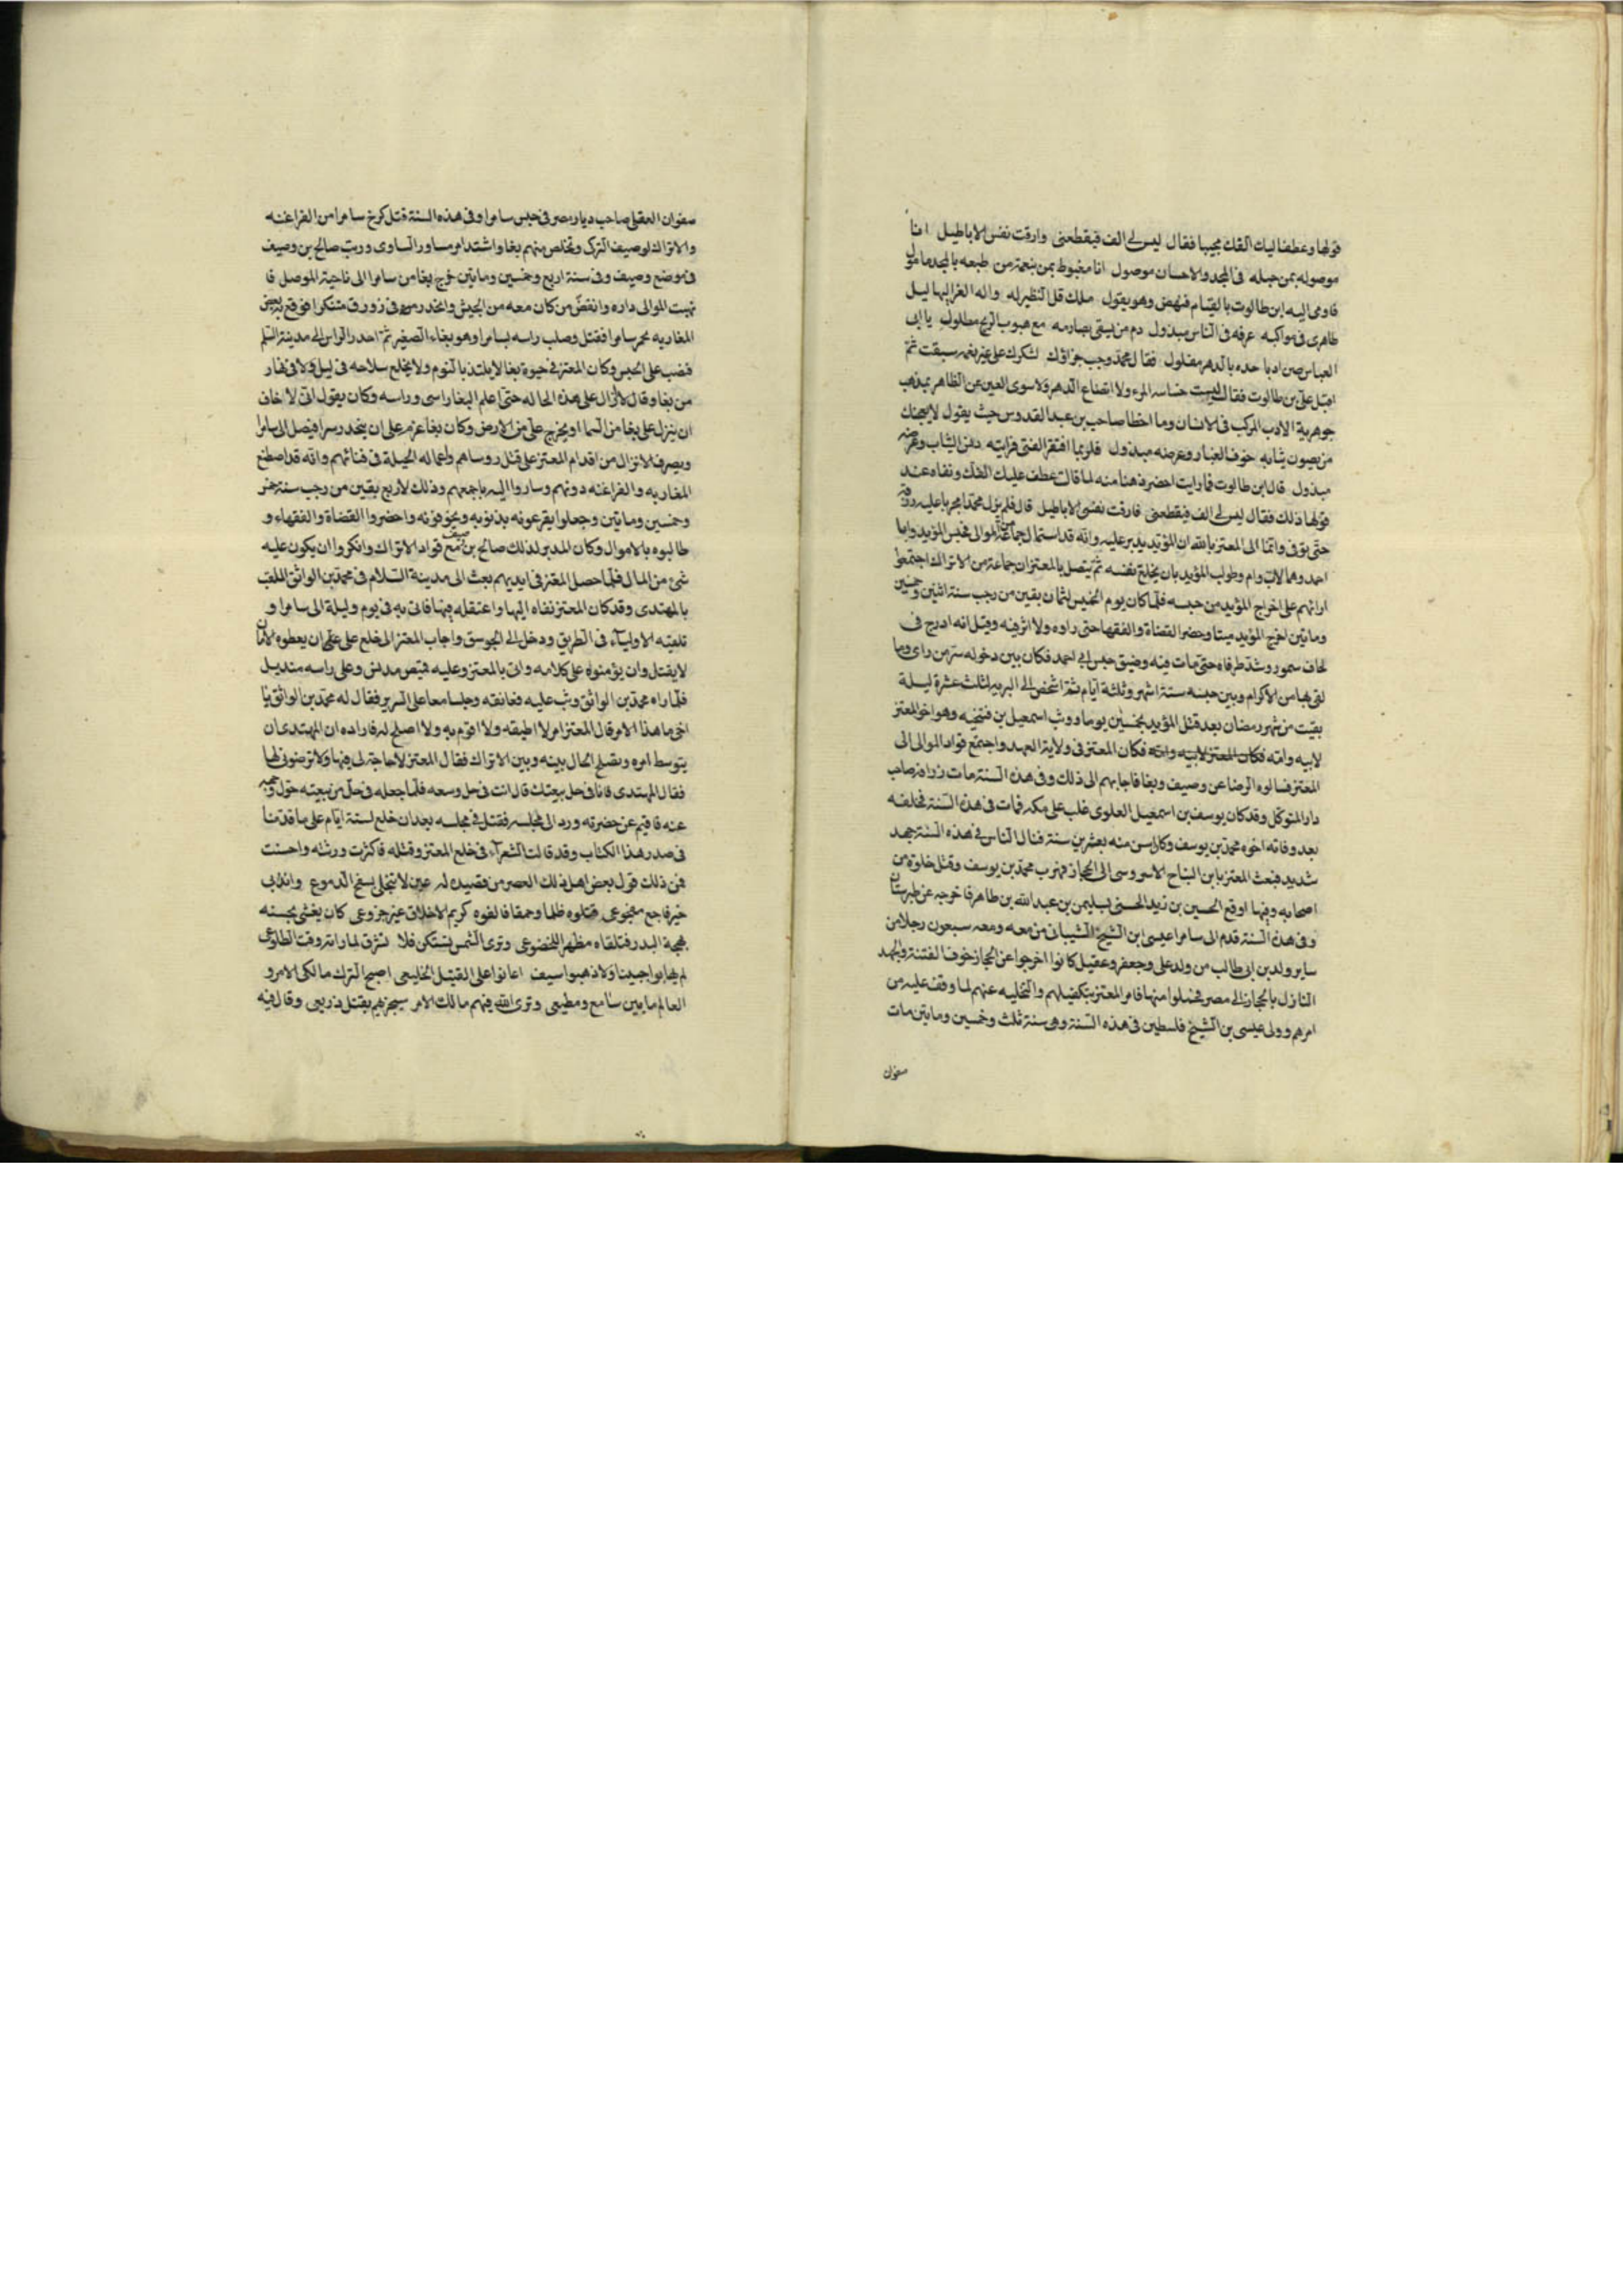 قولها وعطفا ليك الفك مجيبا فقال ليس لى الف فيقطعنى وارقت نفسى الاباطيل انا
موصوله بمن حبله فى المجد والاحسان موصول انا مغبوط بمن بنعمة من طبعه بالمجد مامول
فاومى اليه ابن طالوت بالقيام فنهض وهو يقول ملك قل النظير له واله الغر البهاليل
طاهرى فى مواكبه عرفه فى الناس مبذول دم من يسقى بصارمه مع هبوب الريح مطلول يا ابى
العباس صن ادبا حده بالدهر مفلول فقال محمد وجب جزاؤك لشكرك على غير نعمه سبقت ثم
اقبل على بن طالوت فقال ليست خساسه المرء ولا اتضاع الدهر ولا سوى العين عن الظاهر بمذهب
جوهرية الادب المركب فى الانسان وما اخطا صاحب بن عبد القدوس حيث يقول لا يعجبنك
من يصون ثيابه خوف الغبار وعرضه مبذول فلربما افتقر الفتى فرايته دنس الثياب وعرضه
مبذول قال ابن طالوت فما رايت احضر ذهنا منه لما قالت عطف عليك الفك ونفاه عند
قولها ذلك فقال ليس لى الف فيقطعنى فارقت نفسى الاباطيل قال فلم يزل محمد مجريا عليه رزقه
حتى توفى وانتما الى المعتز بالله ان المؤيد يدبر عليه وانه قد استمال جماعة من الموالى فحبس المؤيد وابا
احمد وهما لاب وام وطولب المؤيد بان يخلع نفسه ثم يتصل بالمعتز ان جماعة من الاتراك اجتمعوا
ارائهم على اخراج المؤيد من حبسه فلما كان يوم الخميس لثمان بقين من رجب سنة اثنين وخمسين
ومايتين اخرج المؤيد ميتا وحضر القضاة والفقها حتى راوه ولا اثر فيه وقيل انه ادرج فى
لحاف سمور وشد طرفاه حتى مات فيه وضيق حبس ابى احمد فكان بين دخوله سر من راى وما
لقى بها من الاكرام وبين حبسه ستة اشهر وثلثة ايام ثم اشخص الى البريه لثلث عشرة ليلة
بقيت من شهر رمضان بعد قتل المؤيد بخمسين يوما ووث اسمعيل بن فتخيه وهو اخو المعتز
لابيه وامه فكان المعتز لابيه وامه فكان المعتز فى ولاية العهد واجتمع قواد الموالى الى
المعتز فسالوه الرضا عن وصيف وبغا فاجابهم الى ذلك وفى هذه السنة مات زرافه صاحب
دار المتوكل وقد كان يوسف بن اسمعيل العلوى غلب على مكه فمات فى هذه السنة فخلفه
بعد وفاته اخوه محمد بن يوسف وكان اسن منه بعشرين سنة فنال الناس فى هذه السنة جهد
شديد فبعث المعتز بابن الساج الاسروسى الى الحجاز فهرب محمد بن يوسف وقتل خلق من
اصحابه وفيها اوقع الحسين بن زيد الحسنى بسليمن بن عبد الله بن طاهر فاخرجه عن طبرستان
وفى هذه السنة قدم الى سامرا عيسى ابن الشيخ الشيبانى من معه ومعه سبعون رجلا من
ساير ولد بن ابى طالب من ولد على وجعفر وعقيل كانوا اخرجوا عن الحجاز خوف الفتنة والجهد
النازل بالحجاز الى مصر فحملوا منها فامر المعتز بتكفيلهم والتخليه عنهم لما وقف عليه من
امرهم وولى عيسى بن الشيخ فلسطين فى هذه السنة وهى سنة ثلث وخمسين ومايتين مات
صفوان
صفوان العقيلى صاحب ديار مصر فى حبس سامرا وفى هذه السنة قتل كرخ سامرا من الفراغنه
والاتراك لوصيف التركى وتخلص منهم بغا واشتد امر مساور الساوى ورتب صالح بن وصيف
فى موضع وصيف وفى سنة اربع وخمسين ومايتين خرج بغا من سامرا الى ناحية الموصل فا
نهبت الموالى داره وانفض من كان معه من الجيش وانحدر فى زورق متنكرا فوقع به بعض
المغاربه بجسر سامرا فقتل وصلب راسه بسامرا وهو بغاء الصغير ثم احدر الراس الى مدينة السلم
فنصب على الجسر وكان المعتز فى حيوة بغا لا يلتذ بالنوم ولا يخلع سلاحه فى ليل ولا فى نهار
من بغا وقال لا ازال على هذه الحاله حتى اعلم البغا راسى وراسه وكان يقول انى لاخاف
ان ينزل على بغا من السما او يخرج على من الارض وكان بغا عزم على ان ينحدر سرا فيصل الى سامرا
ويصرف الاتراك من اقدام المعتز على قتل روساهم واعماله الحيلة فى فنائهم وانه قد اصطنع
المغاربه والفراغنه دونهم وساروا اليه باجمعهم وذلك لاربع بقين من رجب سنة خمس
وخمسين ومايتين وجعلوا يقرعونه بذنوبه ويخوفونه واحضروا القضاة والفقهاء و
طالبوه بالاموال وكان المدبر لذلك صالح بن وصيف مع قواد الاتراك وانكروا ان يكون عليه
شئ من المال فلما حصل المعتز فى ايديهم بعث الى مدينة السلام فى محمد بن الواثق الملقب
بالمهتدى وقد كان المعتز نفاه اليها واعتقله فيها فاتى به فى يوم وليلة الى سامرا و
تلقيته الاولياء فى الطريق ودخل الى الجوسق واجاب المعتز الى خلع على ان يعطوه الامان
لا يقتل وان يؤمنوه على كلامه واتى بالمعتز وعليه قميص مدنس وعلى راسه منديل
فلما راه محمد بن الواثق وثب عليه فعانقه وجلسا معا على السرير فقال له محمد بن الواثق يا
اخى ما هذا الامر قال المعتز امر لا اطيقه ولا اقوم به ولا اصلح له فاراده ان المهتدى ان
يتوسط امره ويصلح الحال بينه وبين الاتراك فقال المعتز لا حاجة لى فيها ولا ترضونى لها
فقال المهتدى فانا فى حل بيعتك قال انت فى حل وسعه فلما جعله فى حل من بيعته حول وجهه
عنه فاقيم عن حضرته ورد الى مجلسه فقتل فى مجلسه بعد ان خلع لستة ايام على ما قدمنا
فى صدر هذا الكتاب وقد قالت الشعرآء فى خلع المعتز وقتله فاكثرت ورثته واحسنت
فمن ذلك قول بعض اهل ذلك العصر من قصيده له عين لا تبخلى بسفح الدموع واندبى
خير فاجع مفجوعى قتلوه ظلما وحمقا فالفوه كريم الاخلاق غير جزوعى كان يغشى بحسنه
بهجة البدر فتلقاه مظهر الخضوعى وترى الشمس تستكن فلا تشرق لما راته وقت الطلوعى
لم يهابوا جيشا ولا ذهبوا سيف اعانوا على القتيل الخليعى اصبح الترك مالكى الامر و
العالم ما بين سامع ومطيعى وترى الله فيهم مالك الامر سيجزيهم بقتل ذريعى وقال فيه